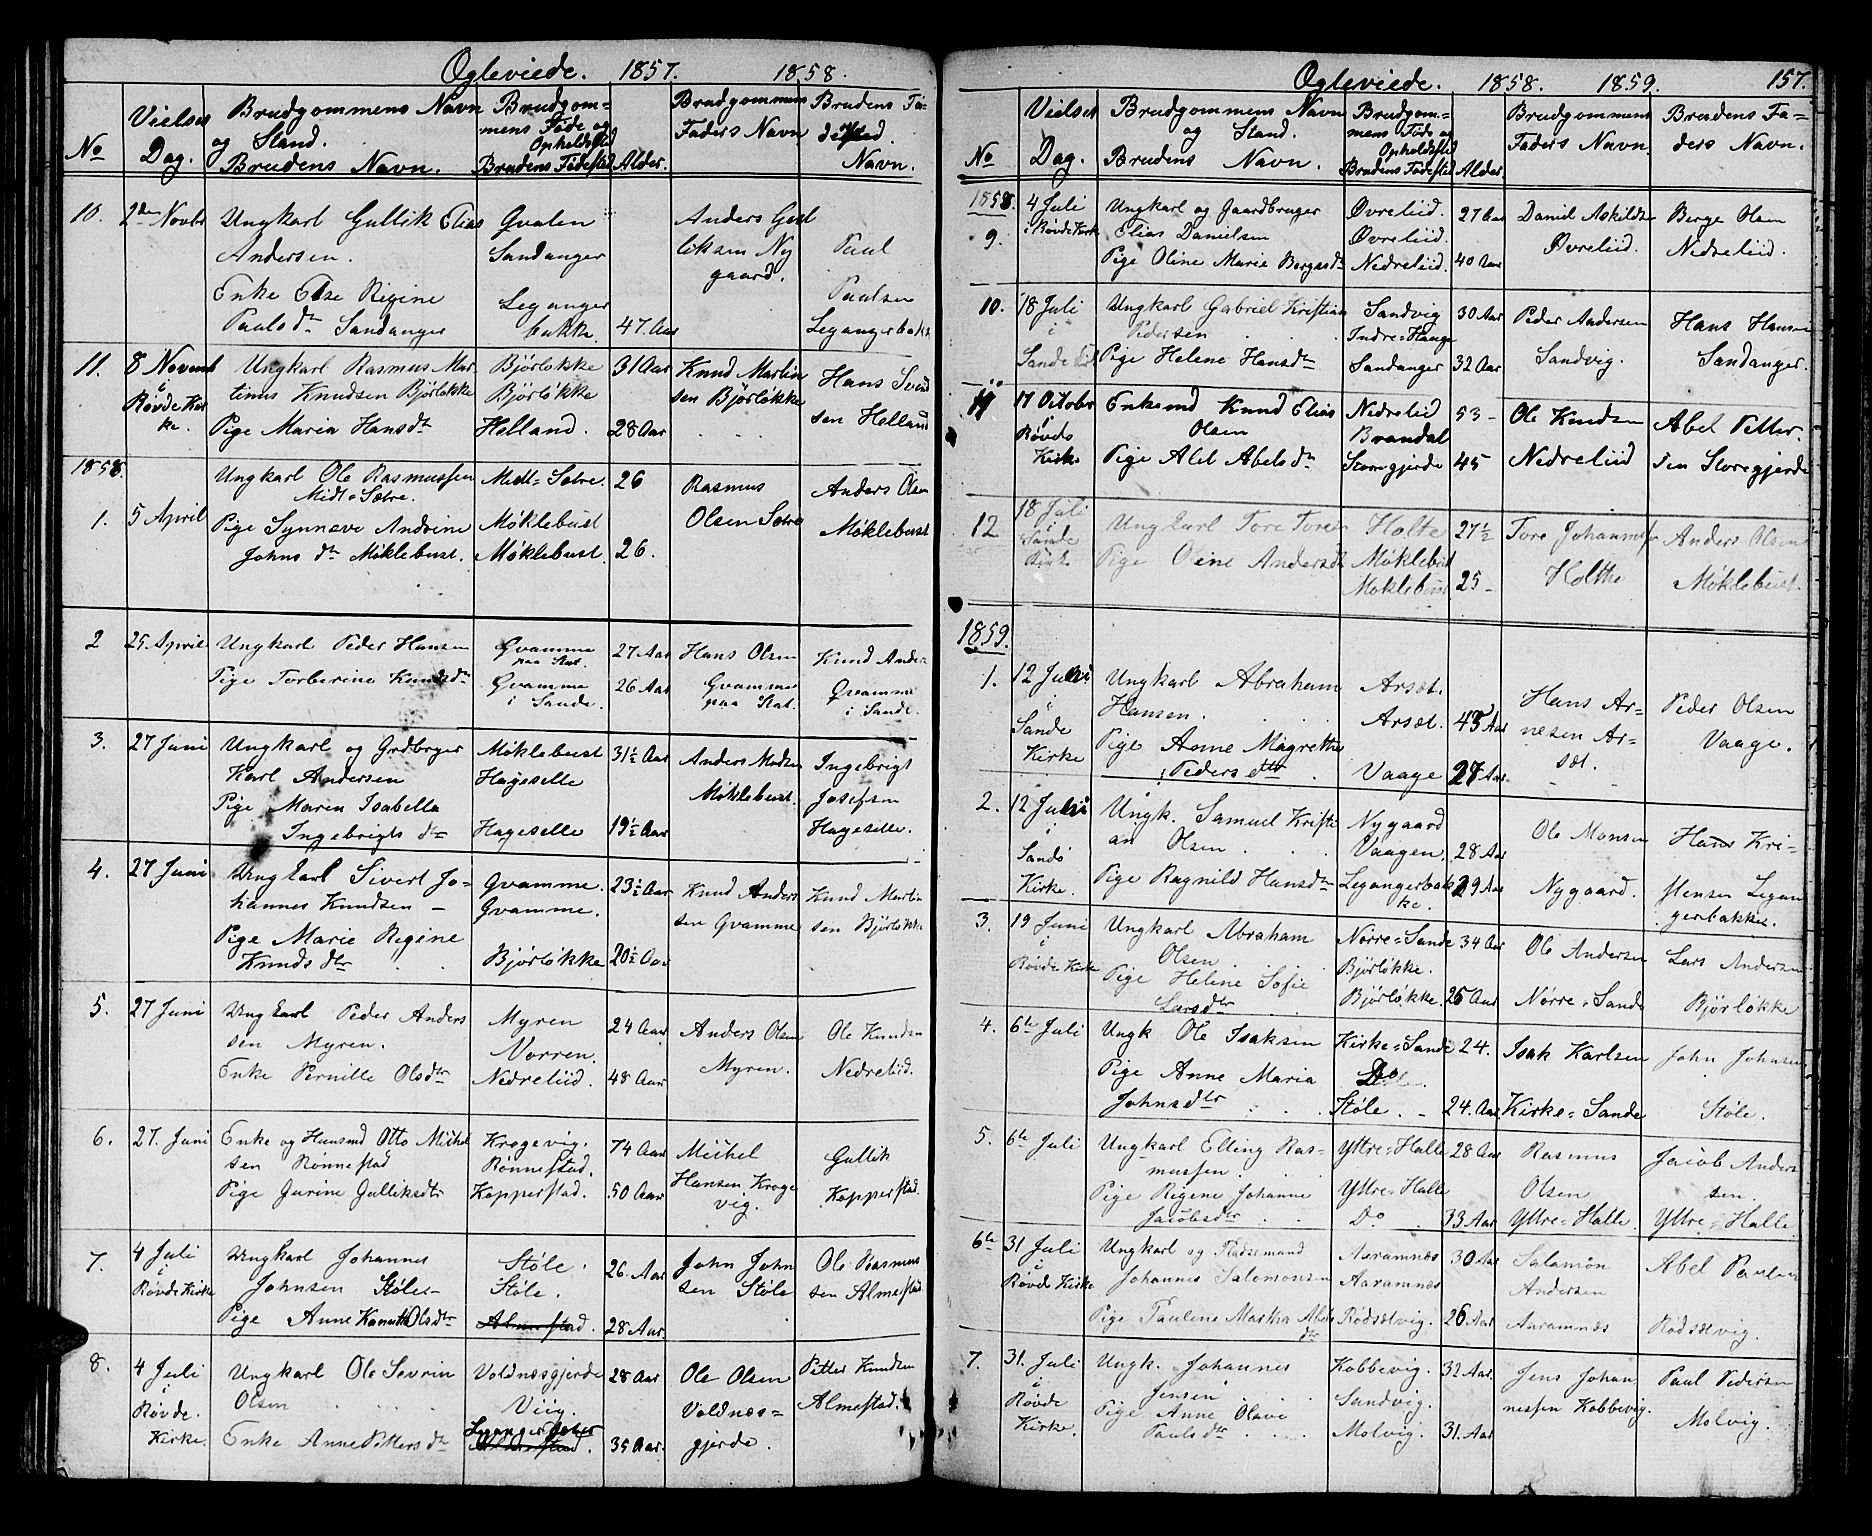 Ogteviede. 1857. 1858.
No
Vielses Dag.
Brudgommens Navn
og Stand.
Brudens Navn.
Brudgom=
mens Föde og
Opholdssted
Brudens Födested
Alder.
Brudgommens
Faders Navn
Brudens Fa-
ders
Navn.
10. 2den Novbr
Ungkarl Gullik Elias
Andersen.
Enke Else Regine
Pauls dtr Sandanger
Qvalen
Sandanger
Leganger
bakke.
47. Aar
Anders Gul
leksen Ny
gaard.
Paul
Paulsen
Legangerbakke
11. 8 Novemb
i
Røvde Kir
ke.
Ungkarl Rasmus Mar
tinus Knudsen Bjørløkke
Pige Maria Hansdtr
Bjørløkke
Bjørløkke
Helland.
31 Aar
28 Aar
Knud Martin
sen Bjørløkke
Hans Svend
sen Helland
1858.
1. 5 April
Ungkarl Ole Rasmussen
Midt=Sætre.
Pige Synneve Andrine
Johns dtr Møklebust.
Midt=Sætre.
Møklebust
Møklebust
26
26.
Rasmus
Olsen Sætre
Anders Olsen
Møklebust
2 25 April
Ungkarl Peder Hansen
Pige Torberine Knudsdtr
Qvamme
paa Stat.
Qvamme
i Sande.
27 Aar
26 Aar
Hans Olsen
Qvamme
paa Stat.
Knud Anders
Qvamme
i Sande.
3. 27 Juni
Ungkarl og Grdbrger
Karl Andersen
Pige Maren Isabella
Ingebrigts dtr
Møklebust
Hageselle
Hageselle
31½ Aar
19½ Aar
Anders Madsen
Møklebust.
Ingebrigt
Josefsen
Hageselle.
4. 27 Juni
Ungkarl Sivert Jo-
hannes Knudsen -
Pige Marie Regine
Knuds dtr
Qvamme.
Qvamme.
Bjørløkke
23½ Aar
20½ Aar
Knud Anders
sen Qvamme
Knud Martin
sen Bjørløkke
5. 27 Juni
Ungkarl Peder Anders
sen Myren.
Enke Pernille Olsdtr
Myren
Norren.
Nedreliid.
24 Aar
48 Aar
Anders Olsen
Myren.
Ole Knudsen
Nedreliid.
6. 27. Juni
Enke og Huusmd Otto Mickel
sen Rønnestad
Pige Jurine Gulliksdtr
Krogevig.
Rønnestad.
Kopperstad.
74 Aar
50 Aar
Mickel
Hansen Kroge
vig.
Gullik
Kopperstad.
7. 4 Juli
i
Røvde Kirke
Ungkarl Johannes
Johnsen Støle-
Pige Anne Olsdtr
Støle.
Støle.
Almestad.
26. Aar
28 Aar
John John
sen Støle
Ole Rasmus
sen Almestad
8. 4 Juli
i
Røvde.
Kirke.
Ungkarl Ole Sevrin
Olsen
Enke Anne Petters dtr
Voldnæsgjerde
Viig.
28 Aar
35 Aar
Ole Olsen
Voldnæs=
gjerde.
Petter Knudsen
Almestad.
Ogteviede. 1858. 1859. 157.
No
Vielses
Dag.
Brudgommens Navn
og Stand.
Brudens Navn.
Brudgom=
mens Föde og
Opholdssted
Brudens Fødested
Alder
Brudgommens
Faders Navn.
Brudens Fa=
ders Navn.
1858.
9.
4 Juli
i Røvde Kirk
Ungkarl og Gaardbruger
Elias Danielsen
Pige Oline Marie Bergesdtr
Øvreliid.
Øvreliid.
Nedreliid.
27 Aar
40 Aar
Daniel Askildsen
Øvreliid.
Berge Olsen
Nedreliid.
10. 18 Juli
i
Sande Kirk
Ungkarl Gabriel Kristian
Pedersen
Pige Helene Hansdtr
Sandvig
Indre=Hauge
Sandanger
30 Aar
32 Aar
Peder Andersen
Sandvig.
Hans Hansen
Sandanger.
11 17 October
i
Røvde
Kirke
Enkemd Knud Elias
Olsen
Pige Abel Abels dtr
Nedrelid
Brandal
Storegjerde
53-
45
Ole Knudsen
Nedreliid
Abel Petter-
sen Storegjerde
12 18 Juli
i
Sande
Kirke
Ungkarl Tore Toresen
Pige Oline Andersdtr
Holte
Møklebust
Møklebust
27½
25-
Tore Johannesen
Holthe
Anders Olsen
Møklebust.
1859.
1. 12 Juni
i
Sande
Kirke
Ungkarl Abraham
Hansen.
Pige Anne Magrethe
Peders dtr
Arsæt.
Arsæt.
Vaage
45 Aar
27 Aar
Hans Ar=
nesen Ar=
sæt.
Peder Olsen
Vaage.
2. 12 Juni
i
Sande
Kirke.
Ungk. Samuel Kristi
an Olsen
Pige Ragnild Hansdtr
Nygaard
Vaagen.
Legangerbak
ke.
28 Aar
29 Aar
Ole Monsen
Nygaard.
Hans Kri-
stensen Legan
gerbakke.
3. 19 Juni
i
Røvde Kirke
Ungkarl Abraham
Olsen
Pige Helene Sofie
Larsdtr
Nørre=Sande
Bjørløkke.
Bjørløkke.
34 Aar
25 Aar
Ole Andersen
Nørre=Sande
Lars Andersen
Bjørløkke
4. 6te Juli
Ungk Ole Isaksen
Pige Anne Maria
Johnsdtr
Kirke=Sande
Do
Støle.
24.
24. Aar
Isak Karlsen
Kirke=Sande
John Johnsen
Støle.
5. 6te Juli
Ungkarl Elling Ras-
mussen
Pige Regine Johanne
Jacobsdtr
Yttre=Halle
Yttre=Halle
Do
28 Aar
33 Aar
Rasmus
Olsen
Yttre=Halle.
Jacob Anders
sen.
Yttre=Halle
6te 31 Juli
i
Røvde Kirke
Ungkarl og Pladsemand
Johannes Salomonsen
Pige Pauline Martha Abels
dtr
Aaramnæs
Aaramnæs
Rødsætvig.
30 Aar
26 Aar
Salamon
Andersen
Aaramnæs
Abel Paulsen
Rødsætvig.
7. 31. Juli
i
Røvde
Kirke.
Ungk. Johannes
Jensen
Pige Anne Olave
Pauls dtr
Kobbevig.
Sandvig.
Molvig.
32 Aar.
31. Aar
Jens Johan
nessen Kobbevig.
Paul Pedersen
Molvig.